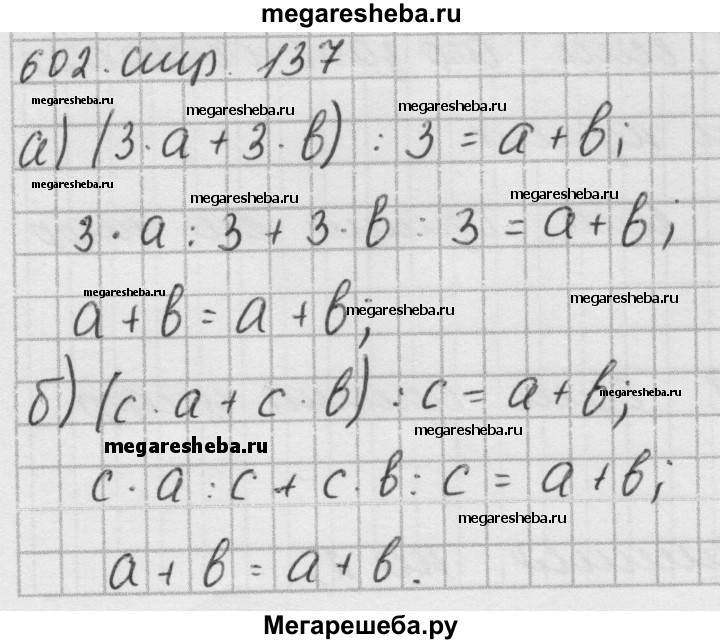 megaresheba.ru
602. стр. 137
megaresheba.ru megaresheba.ru megaresheba.ru
а) (3 · а + 3 · в) : 3 = а + в;
megaresheba.ru megaresheba.ru megaresheba.ru
3 · а : 3 + 3 · в : 3 = а + в;
megaresheba.ru megaresheba.ru
а + в = а + в;
megaresheba.ru
б) (с · а + с · в) : с = а + в;
megaresheba.ru
megaresheba.ru megaresheba.ru
с · а : с + с · в : с = а + в;
megaresheba.ru
а + в = а + в.
Мегарешеба.ру